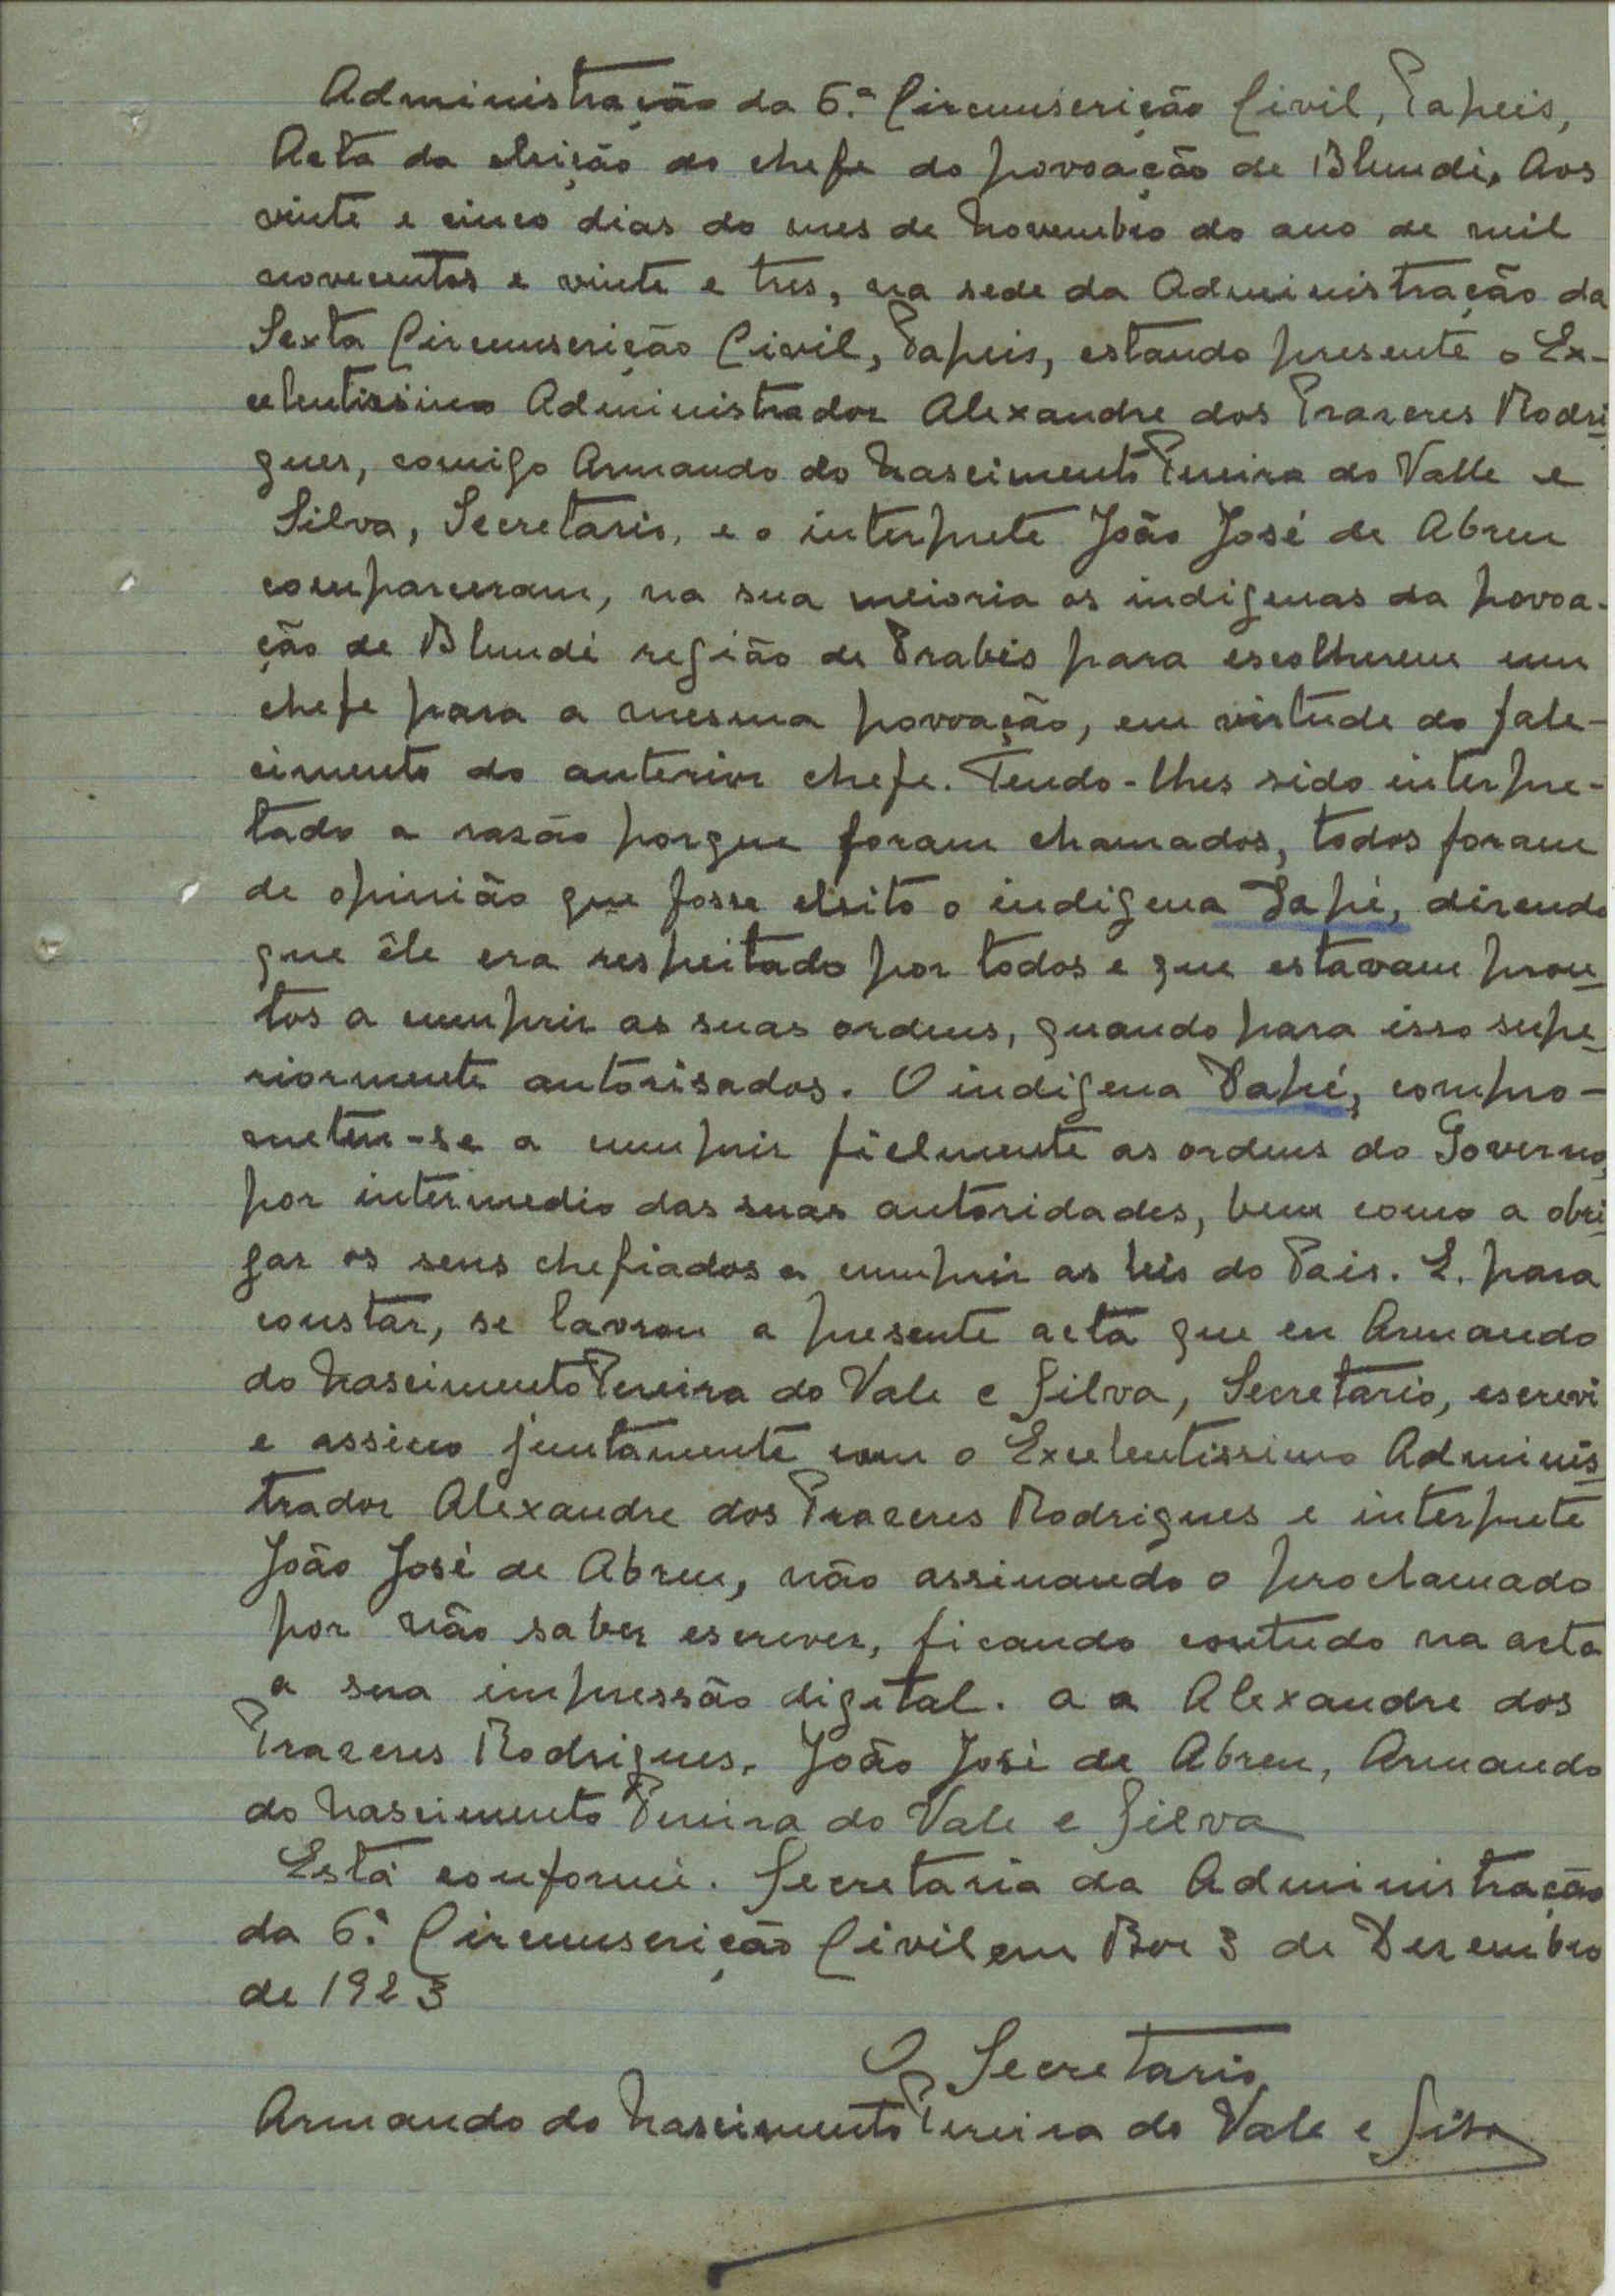 Administração da 6.ª Circunscrição Civil, Papeis,
Acta da eleição do chefe da povoação de Blundi, Aos
vinte e cinco dias do mes de Novembro do ano de mil
novecentos e vinte e tres, na sede da Administração da
Sexta Circunscrição Civil, Papeis, estando presente o Ex-
celentissimo Administrador Alexandre dos Prazeres Rodri
gues, comigo Armando do Nascimento Pereira do Valle e
Silva, Secretario, e o interprete João José de Abreu
compareceram, na sua meioria os indigenas da povoa-
ção de Blundi região de Prabis para escolherem um
chefe para a mesma povoação, em virtude do fale-
cimento do anterior chefe. Tendo-lhes sido interpre-
tado a rasão porque foram chamados, todos foram
de opinião que fosse eleito o indigena Papé, dizendo
que êle era respeitado por todos e que estavam pron
tos a cumprir as suas ordens, quando para isso supe
riormente autorisados. O indigena Papé, compro-
meteu-se a cumprir fielmente as ordens do Governo,
por intermedio das suas autoridades, bem como a obri
gar os seus chefiados a cumprir as leis do Pais. E. para
constar, se lavrou a presente acta que eu Armando
do Nascimento Pereira do Vale e Silva, Secretario, escrevi
e assino juntamente com o Excelentissimo Adminis
trador Alexandre dos Prazeres Rodrigues e interprete
João José de Abreu, não assinando o proclamado
por não saber escrever, ficando contudo na acta
a sua impressão digital. a a Alexandre dos
Prazeres Rodrigues, João José de Abreu, Armando
do Nascimento Pereira do Vale e Silva
Está conforme. Secretaria da Administração
da 6.ª Circunscrição Civil em Bor 3 de Dezembro
de 1923
O Secretario,
Armando do Nascimento Pereira do Vale e Silva